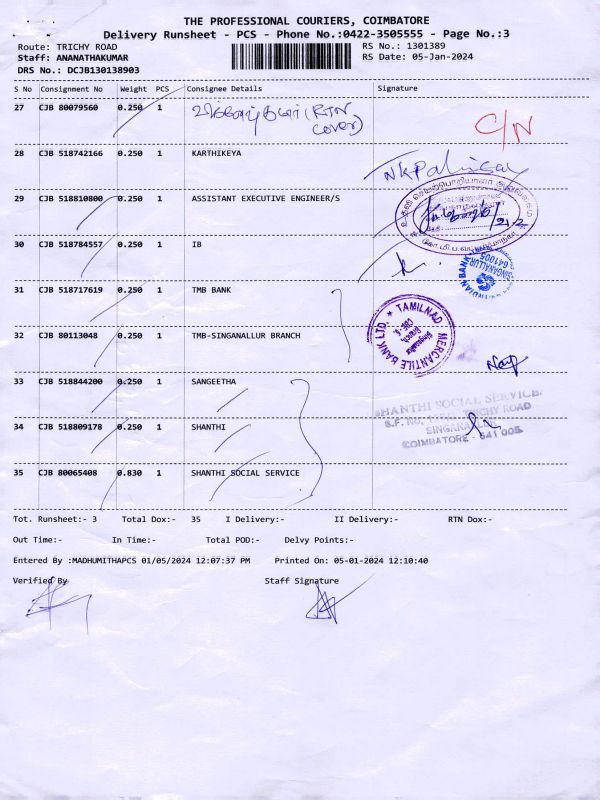 THE PROFESSIONAL COURIERS, COIMBATORE
Delivery Runsheet - PCS - Phone No.:0422-3505555 - Page No.:3
Route: TRICHY ROAD
RS No.: 1301389
Staff: ANANATHAKUMAR
RS Date: 05-Jan-2024
DRS No.: DCJB130138903
S No Consignment No Weight PCS Consignee Details Signature
27 CJB 80079560 0.250 1 (RTN cover) C/N
28 CJB 518742166 0.250 1 KARTHIKEYA
29 CJB 518810800 0.250 1 ASSISTANT EXECUTIVE ENGINEER/S
30 CJB 518784557 0.250 1 IB
INDIAN BANK
SINGANALLUR
641005
31 CJB 518717619 0.250 1 TMB BANK
TAMILNAD MERCANTILE BANK LTD.
Singanallur
Branch,
CBE-5.
32 CJB 80113048 0.250 1 TMB-SINGANALLUR BRANCH
33 CJB 518844200 0.250 1 SANGEETHA
SHANTHI SOCIAL SERVICE,
S.F. No, TRICHY ROAD
SINGANALLUR
COIMBATORE - 641 005
34 CJB 518809178 0.250 1 SHANTHI
35 CJB 80065408 0.830 1 SHANTHI SOCIAL SERVICE
Tot. Runsheet:- 3 Total Dox:- 35 I Delivery:- II Delivery:- RTN Dox:-
Out Time:- In Time:- Total POD:- Delvy Points:-
Entered By :MADHUMITHAPCS 01/05/2024 12:07:37 PM Printed On: 05-01-2024 12:10:40
Verified By Staff Signature